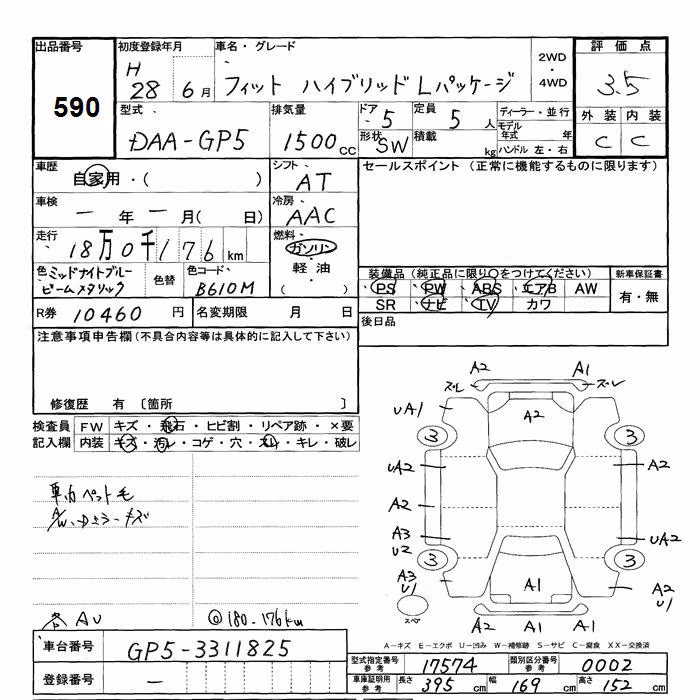 出品番号
590
初度登録年月
H 28 6月
車名・グレード
フィット ハイブリッド Lパッケージ
2WD
・
4WD
評価点
3.5
型式
DAA-GP5
排気量
1500cc
ドア
5
形状
SW
定員
5人
積載
kg
ディーラー・並行
モデル年式 年
ハンドル 左・右
外装 内装
C C
車歴
自家用・( )
シフト
AT
車検
一年一月( 日)
冷房
AAC
走行
18万0千176km
燃料
ガソリン
軽油
( )
色 ミッドナイトブルー
ビームメタリック
色替
色コード
B610M
R券 10460円
名変期限 月 日
セールスポイント (正常に機能するものに限ります)
装備品(純品品に限り○をつけてください)
PS PW ABS エアB AW
SR ナビ TV カワ
新車保証書
有・無
後日品
注意事項申告欄(不具合内容等は具体的に記入して下さい)
修復歴 有 〔箇所 〕
検査員
記入欄
FW キズ・飛石・ヒビ割・リペア跡・×要
内装 キズ・汚レ・コゲ・穴・スレ・キレ・破レ
車内ペット毛
A/W、Dミラーキズ
各AU
@180.176km
A2 A1
ズレ ズレ
UA1 A2
3 3
UA2 A2
A2
A3 UA2
U2
3 3
A3 A1 A2
U1 U1
スペア
A2 A1 A1
A-キズ E-エクボ U-凹み W-補修跡 S-サビ C-腐食 XX-交換済
車台番号
GP5-3311825
登録番号
—
型式指定番号
参考
17574
類別区分番号
参考
0002
車庫証明用
参考
長さ 395cm 幅 169cm 高さ 152cm